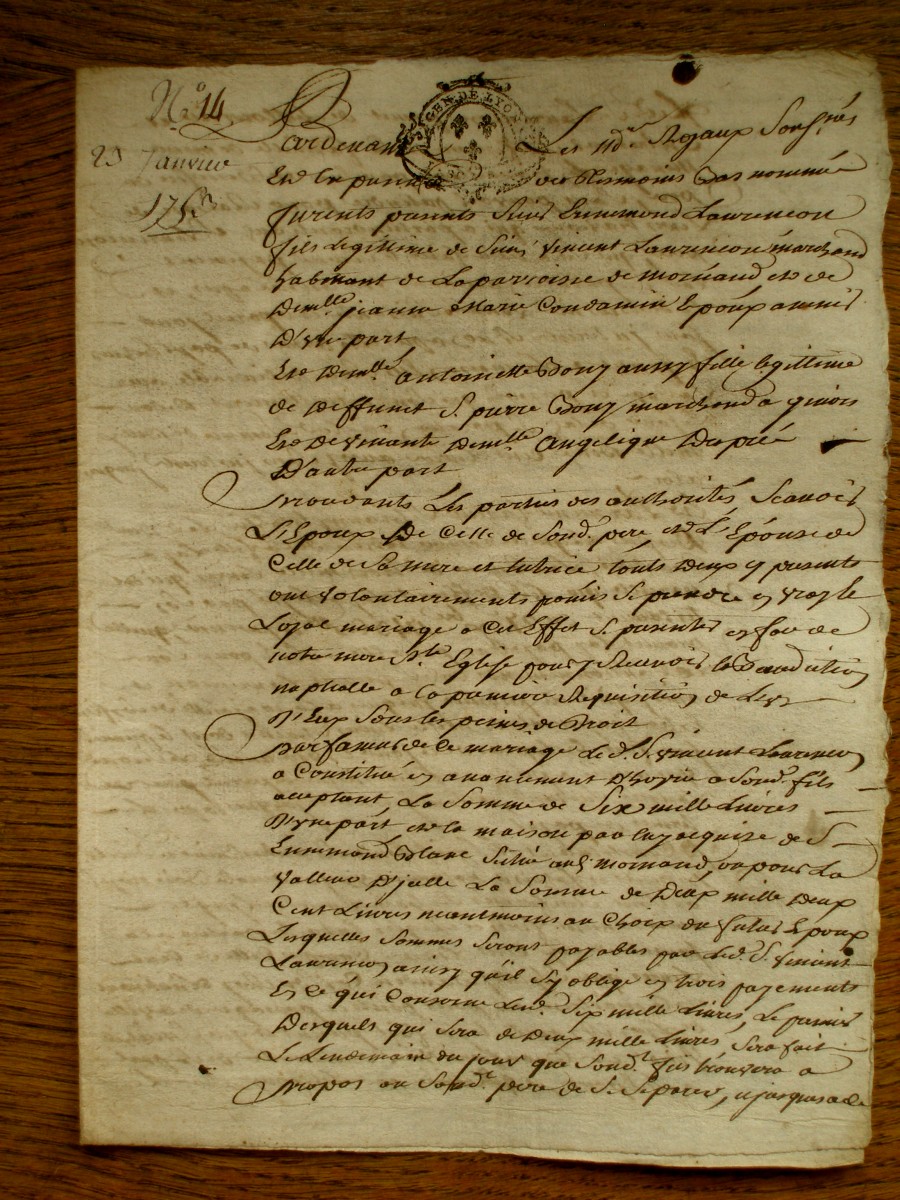 N.° 14
GEN. DE LYON
Pardevant Les No.res Royaux Sousnés
Et En presence des tesmoins Bas nommés
furent presents Sieur Ennemond Laurencon
fils Legittime de Sieur Vincent Laurencon marchand
habitant de La parroisse de mornand et de
Demlle jeanne Marie Condamin Epoux a
D'une part
Et Demlle antoinette Bony aussy fille legittime
de Deffunct S. pierre Bony marchand a
Et De vivante Demlle Angelique Dupré
D'autre part
Procedants Les parties des authorités Scavoir
L'Epoux De Celle de Sond. pere, et L'Epouse de
Celle de Sa mere et tutrice touts deux cy presents
ont volontairements promis Se prendre en vray &
Loyal mariage a Cet Effet Se presenter en face de
notre mere Ste Eglise pour y Recevoir la Benediction
nuptialle a la premiere Requisition de L'un
D'Eux Sous les peines de Droit
En faveur de Ce mariage Led. S. Vincent Laurencon
a Constitué en avancement D'hoyrie a Sond. fils
acceptant, La Somme de Six mille Livres
D'une part et la maison par luy acquise de S.
Ennemond Blanc Située aud. mornand, ou pour La
Valleur D'jcelle La Somme de Deux mille Deux
Cent Livres neantmoins au Choix du futur Epoux
Lesquelles Sommes Seront payables par Led. S. Vincent
Laurencon ainsy qu'il S'y oblige en trois payements
En Ce qui Concerne Lesd. Six mille Livres, Le premier
Desquels qui Sera de Deux mille Livres, Sera fait
Le Lendemain du jour que Sond. fils trouvera a
Propos au Sond. pere de Se Separer, et jusques a ce